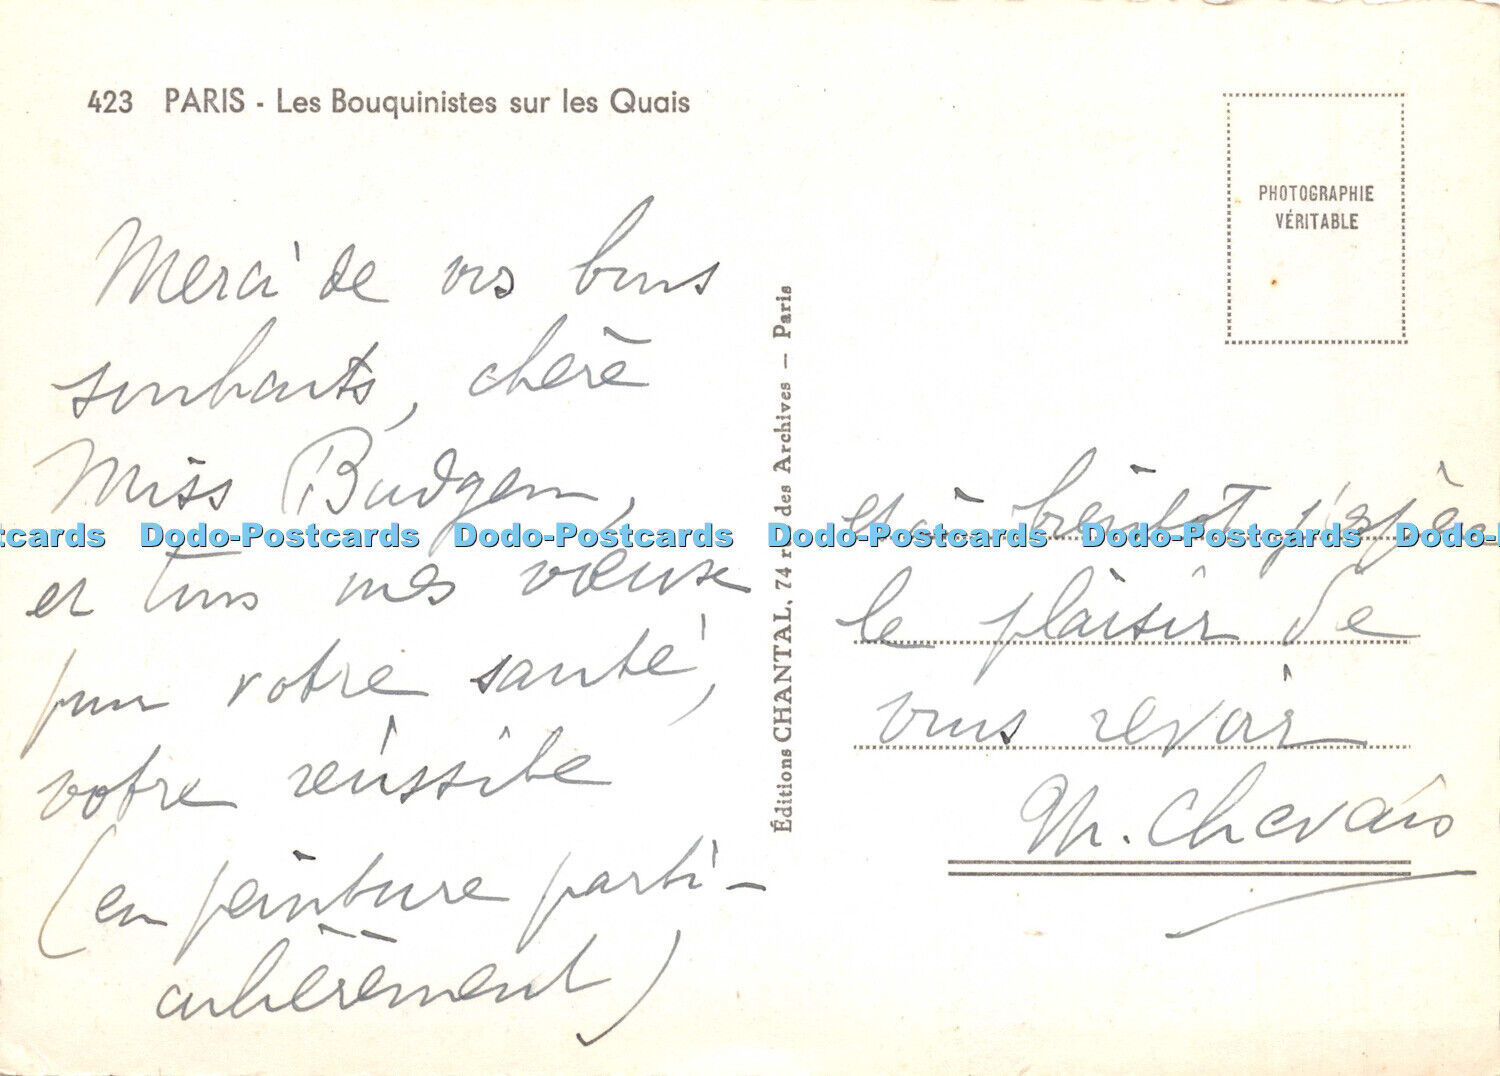 423 PARIS - Les Bouquinistes sur les Quais
PHOTOGRAPHIE
VÉRITABLE
Merci de vos bons
souhaits, chère
Miss Budgen,
et tous mes voeux
pour votre santé,
votre réussite
(en peinture parti-
culièrement)
Éditions CHANTAL, 74 r des Archives — Paris
et à bientôt j'espère
le plaisir de
vous revoir
M. Chevais
Dodo-Postcards Dodo-Postcards Dodo-Postcards Dodo-Postcards